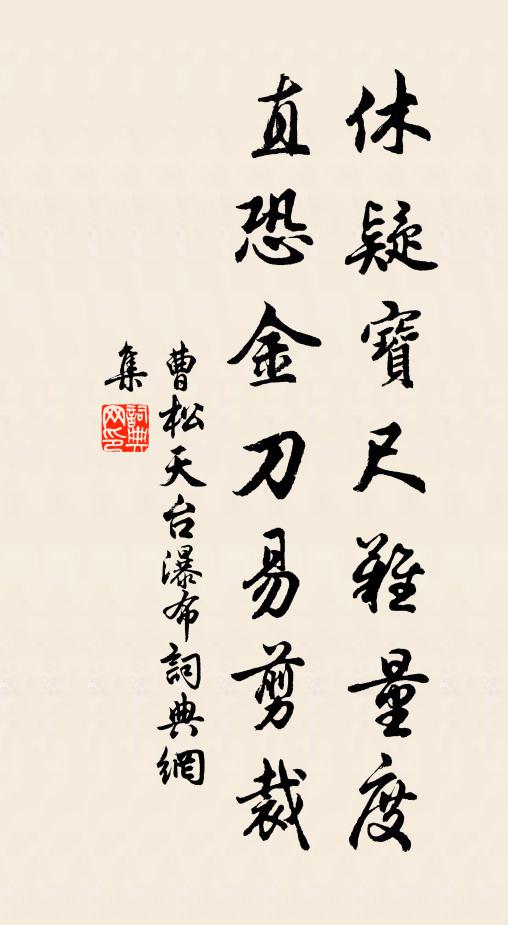 休疑寶尺難量度
直恐金刀易剪裁
曹松天台瀑布詞典網
集
詞典网印